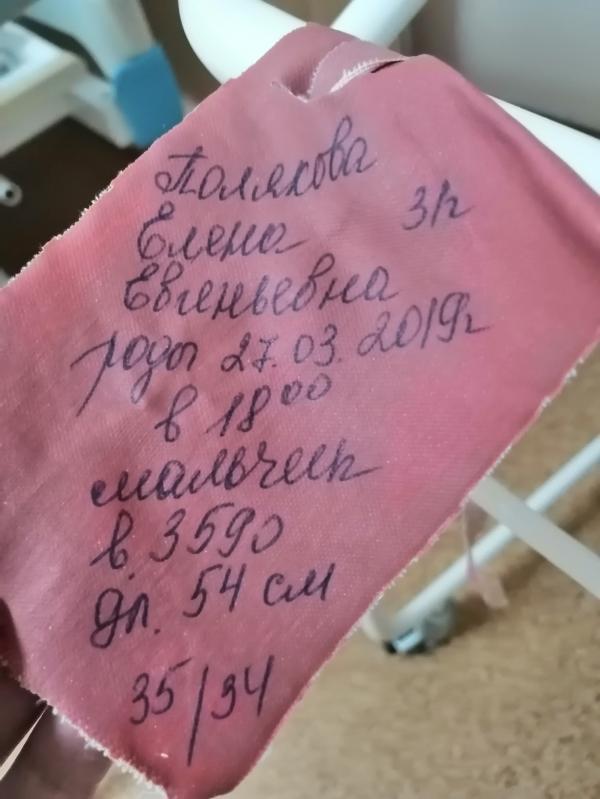 Полякова
Елена 3/г
Евгеньевна
роды 27.03.2019г
в 18⁰⁰
мальчик
в. 3590
дл. 54 см
35/34